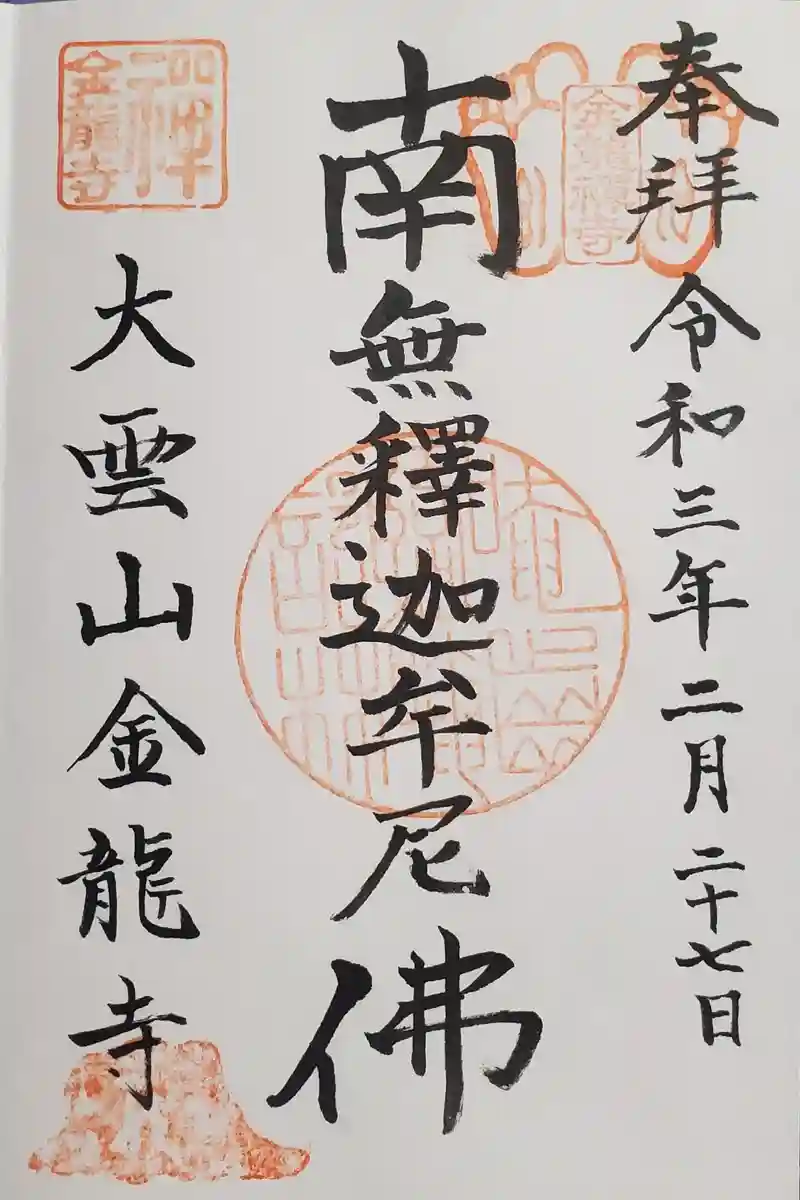 奉拝 令和三年二月二十七日
金龍禅寺
南無釋迦牟尼佛
禅
金龍寺
大雲山金龍寺